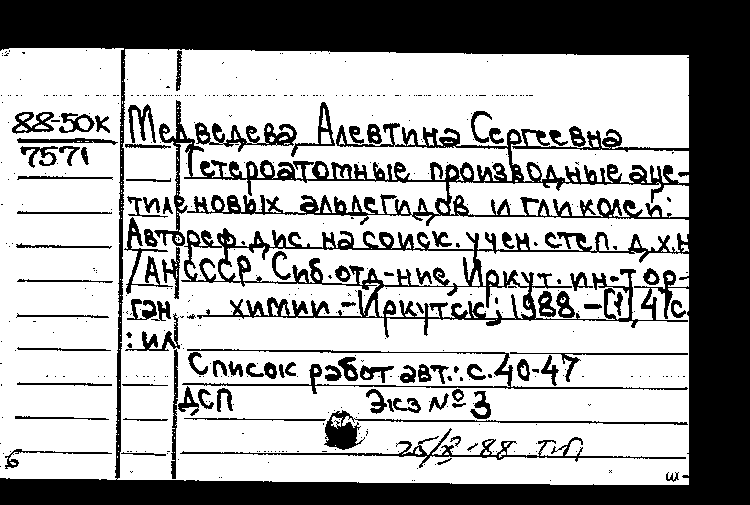 88-50К
7571
Медведева Алевтина Сергеевна
Гетероатомные производные аце-
тиленовых альдегидов и гликолей:
Автореф. дис. на соиск. учен. степ. д.х.н
/АН СССР. Сиб. отд-ние, Иркут. ин-т ор-
ган. химии. - Иркутск; 1988. - [1], 47с.
: ил
Список работ авт.: с. 40-47
ДСП Экз № 3
88
6
ш-